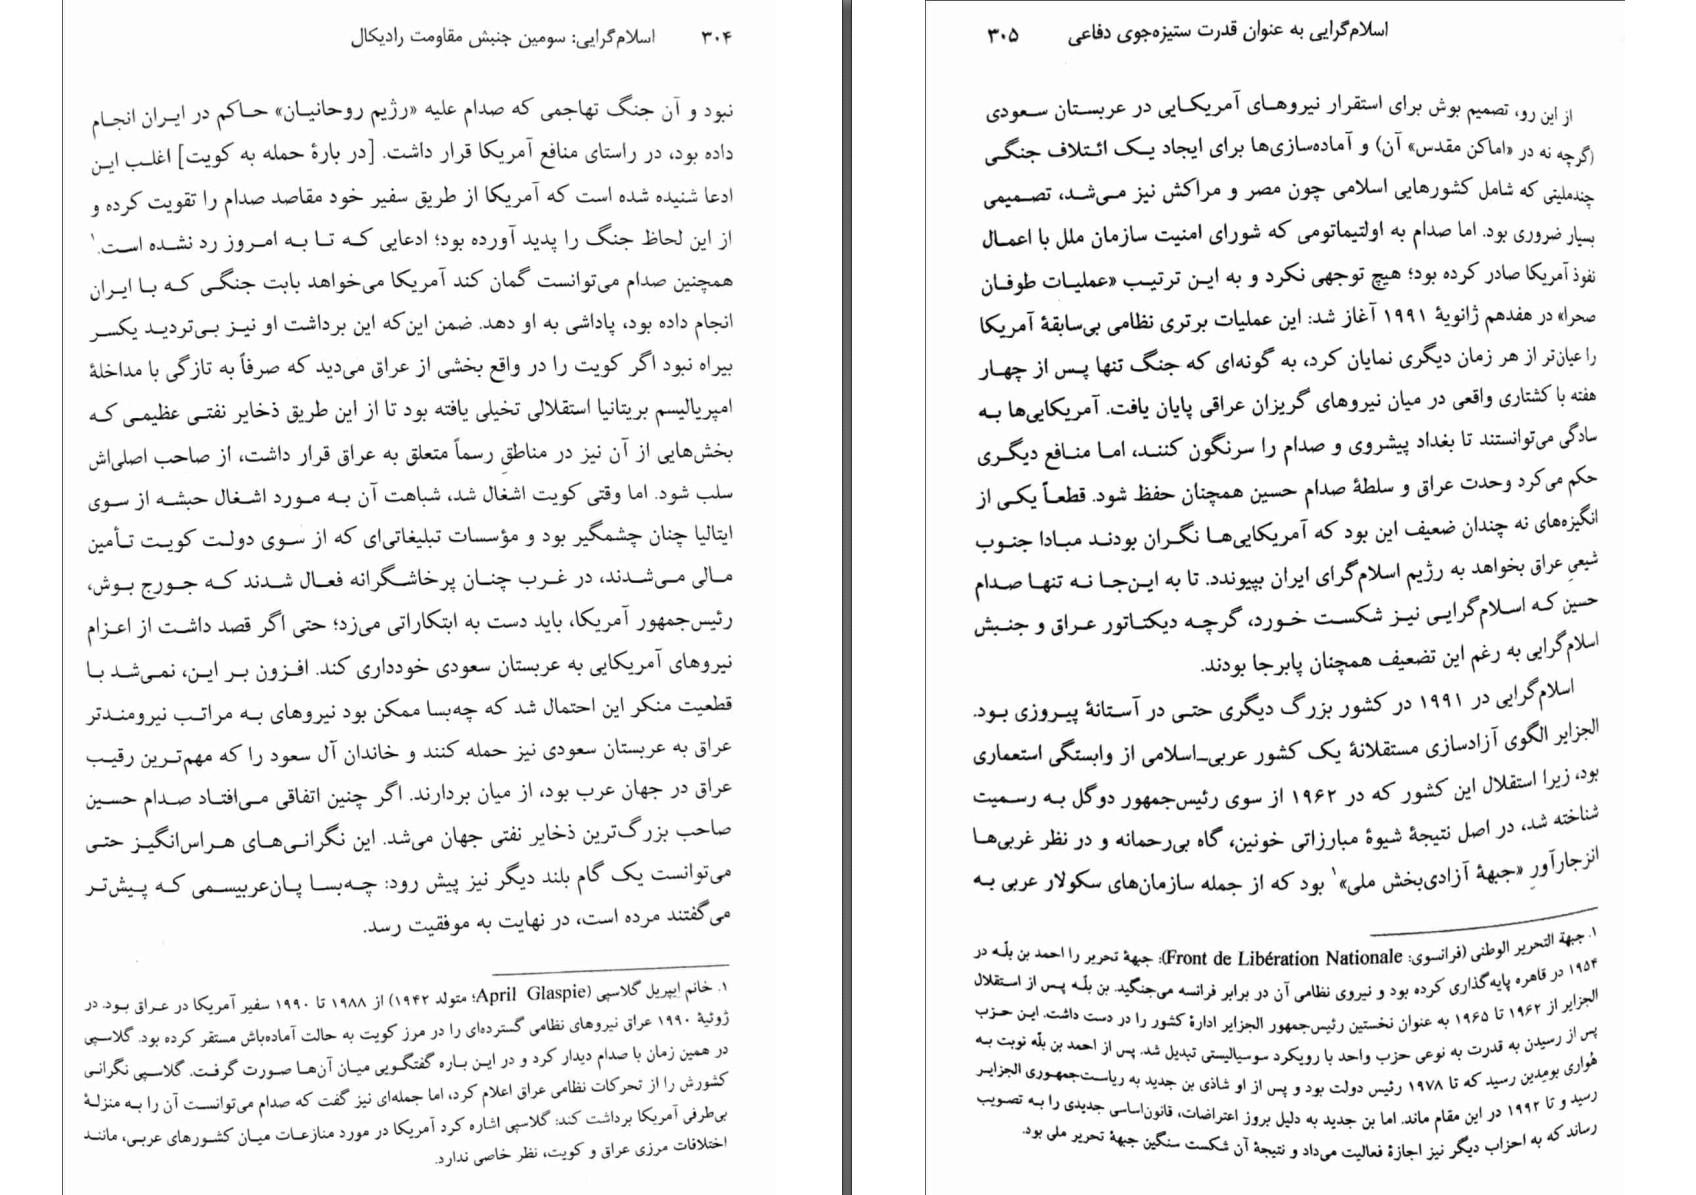 ۳۰۴ اسلام‌گرایی: سومین جنبش مقاومت رادیکال
نبود و آن جنگ تهاجمی که صدام علیه «رژیم روحانیان» حاکم در ایران انجام
داده بود، در راستای منافع آمریکا قرار داشت. [در بارهٔ حمله به کویت] اغلب این
ادعا شنیده شده است که آمریکا از طریق سفیر خود مقاصد صدام را تقویت کرده و
از این لحاظ جنگ را پدید آورده بود؛ ادعایی که تا به امروز رد نشده است.۱
همچنین صدام می‌توانست گمان کند آمریکا می‌خواهد بابت جنگی که با ایران
انجام داده بود، پاداشی به او دهد. ضمن این‌که این برداشت او نیز بی‌تردید یکسر
بیراه نبود اگر کویت را در واقع بخشی از عراق می‌دید که صرفاً به تازگی با مداخلهٔ
امپریالیسم بریتانیا استقلالی تخیلی یافته بود تا از این طریق ذخایر نفتی عظیمی که
بخش‌هایی از آن نیز در مناطقِ رسماً متعلق به عراق قرار داشت، از صاحب اصلی‌اش
سلب شود. اما وقتی کویت اشغال شد، شباهت آن به مورد اشغال حبشه از سوی
ایتالیا چنان چشمگیر بود و مؤسسات تبلیغاتی‌ای که از سوی دولت کویت تأمین
مالی می‌شدند، در غرب چنان پرخاشگرانه فعال شدند که جورج بوش،
رئیس‌جمهور آمریکا، باید دست به ابتکاراتی می‌زد؛ حتی اگر قصد داشت از اعزام
نیروهای آمریکایی به عربستان سعودی خودداری کند. افزون بر این، نمی‌شد با
قطعیت منکر این احتمال شد که چه‌بسا ممکن بود نیروهای به مراتب نیرومندتر
عراق به عربستان سعودی نیز حمله کنند و خاندان آل سعود را که مهم‌ترین رقیب
عراق در جهان عرب بود، از میان بردارند. اگر چنین اتفاقی می‌افتاد صدام حسین
صاحب بزرگ‌ترین ذخایر نفتی جهان می‌شد. این نگرانی‌های هراس‌انگیز حتی
می‌توانست یک گام بلند دیگر نیز پیش رود: چه‌بسا پان‌عربیسمی که پیش‌تر
می‌گفتند مرده است، در نهایت به موفقیت رسد.
۱. خانم اِیپریل گلاسپی (April Glaspie؛ متولد ۱۹۴۲) از ۱۹۸۸ تا ۱۹۹۰ سفیر آمریکا در عراق بود. در
ژوئیهٔ ۱۹۹۰ عراق نیروهای نظامی گسترده‌ای را در مرز کویت به حالت آماده‌باش مستقر کرده بود. گلاسپی
در همین زمان با صدام دیدار کرد و در این باره گفتگویی میان آن‌ها صورت گرفت. گلاسپی نگرانی
کشورش را از تحرکات نظامی عراق اعلام کرد، اما جمله‌ای نیز گفت که صدام می‌توانست آن را به منزلهٔ
بی‌طرفی آمریکا برداشت کند: گلاسپی اشاره کرد آمریکا در مورد منازعات میان کشورهای عربی، مانند
اختلافات مرزی عراق و کویت، نظر خاصی ندارد.
اسلام‌گرایی به عنوان قدرت ستیزه‌جوی دفاعی ۳۰۵
از این رو، تصمیم بوش برای استقرار نیروهای آمریکایی در عربستان سعودی
(گرچه نه در «اماکن مقدس» آن) و آماده‌سازی‌ها برای ایجاد یک ائتلاف جنگی
چندملیتی که شامل کشورهایی اسلامی چون مصر و مراکش نیز می‌شد، تصمیمی
بسیار ضروری بود. اما صدام به اولتیماتومی که شورای امنیت سازمان ملل با اعمال
نفوذ آمریکا صادر کرده بود؛ هیچ توجهی نکرد و به این ترتیب «عملیات طوفان
صحرا» در هفدهم ژانویهٔ ۱۹۹۱ آغاز شد: این عملیات برتری نظامی بی‌سابقهٔ آمریکا
را عیان‌تر از هر زمان دیگری نمایان کرد، به گونه‌ای که جنگ تنها پس از چهار
هفته با کشتاری واقعی در میان نیروهای گریزان عراقی پایان یافت. آمریکایی‌ها به
سادگی می‌توانستند تا بغداد پیشروی و صدام را سرنگون کنند، اما منافع دیگری
حکم می‌کرد وحدت عراق و سلطهٔ صدام حسین همچنان حفظ شود. قطعاً یکی از
انگیزه‌های نه چندان ضعیف این بود که آمریکایی‌ها نگران بودند مبادا جنوب
شیعیِ عراق بخواهد به رژیم اسلام‌گرای ایران بپیوندد. تا به این‌جا نه تنها صدام
حسین که اسلام‌گرایی نیز شکست خورد، گرچه دیکتاتور عراق و جنبش
اسلام‌گرایی به رغم این تضعیف همچنان پابرجا بودند.
اسلام‌گرایی در ۱۹۹۱ در کشور بزرگ دیگری حتی در آستانهٔ پیروزی بود.
الجزایر الگوی آزادسازی مستقلانهٔ یک کشور عربی-اسلامی از وابستگی استعماری
بود، زیرا استقلال این کشور که در ۱۹۶۲ از سوی رئیس‌جمهور دوگل به رسمیت
شناخته شد، در اصل نتیجهٔ شیوهٔ مبارزاتی خونین، گاه بی‌رحمانه و در نظر غربی‌ها
انزجارآورِ «جبههٔ آزادی‌بخش ملی»۱ بود که از جمله سازمان‌های سکولار عربی به
۱. جبهة التحریر الوطنی (فرانسوی: Front de Libération Nationale): جبههٔ تحریر را احمد بن بلّه در
۱۹۵۴ در قاهره پایه‌گذاری کرده بود و نیروی نظامی آن در برابر فرانسه می‌جنگید. بن بلّه پس از استقلال
الجزایر از ۱۹۶۲ تا ۱۹۶۵ به عنوان نخستین رئیس‌جمهور الجزایر ادارهٔ کشور را در دست داشت. این حزب
پس از رسیدن به قدرت به نوعی حزب واحد با رویکرد سوسیالیستی تبدیل شد. پس از احمد بن بلّه نوبت به
هُواری بومِدین رسید که تا ۱۹۷۸ رئیس دولت بود و پس از او شاذی بن جدید به ریاست‌جمهوری الجزایر
رسید و تا ۱۹۹۲ در این مقام ماند. اما بن جدید به دلیل بروز اعتراضات، قانون‌اساسی جدیدی را به تصویب
رساند که به احزاب دیگر نیز اجازهٔ فعالیت می‌داد و نتیجهٔ آن شکست سنگین جبههٔ تحریر ملی بود.